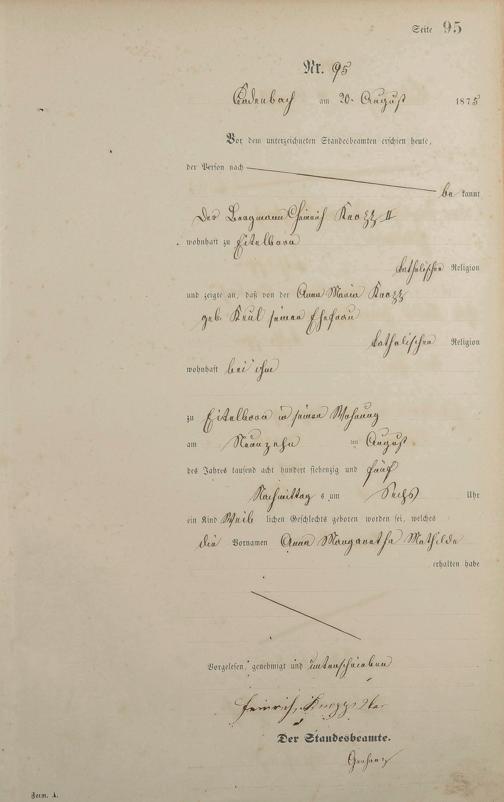 Seite 95
Nr. 95
Cadenbach am 20. August 1875
Vor dem unterzeichneten Standesbeamten erschien heute,
der Person nach
be kannt
Der Bergmann Heinrich Knopp II
wohnhaft zu Eitelborn
katholischer Religion
und zeigte an, daß von der Anna Maria Knopp
geb. Keul seiner Ehefrau
katholischer Religion
wohnhaft bei ihm
zu Eitelborn in seiner Wohnung
am Neunzehn ten August
des Jahres tausend acht hundert siebenzig und fünf
Nachmittag s um Sechs Uhr
ein Kind Weib lichen Geschlechts geboren worden sei, welches
die Vornamen Anna Margaretha Mathilde
erhalten habe
Vorgelesen, genehmigt und unterschrieben
Heinrich Knopp 2ter
Der Standesbeamte.
Form. A.